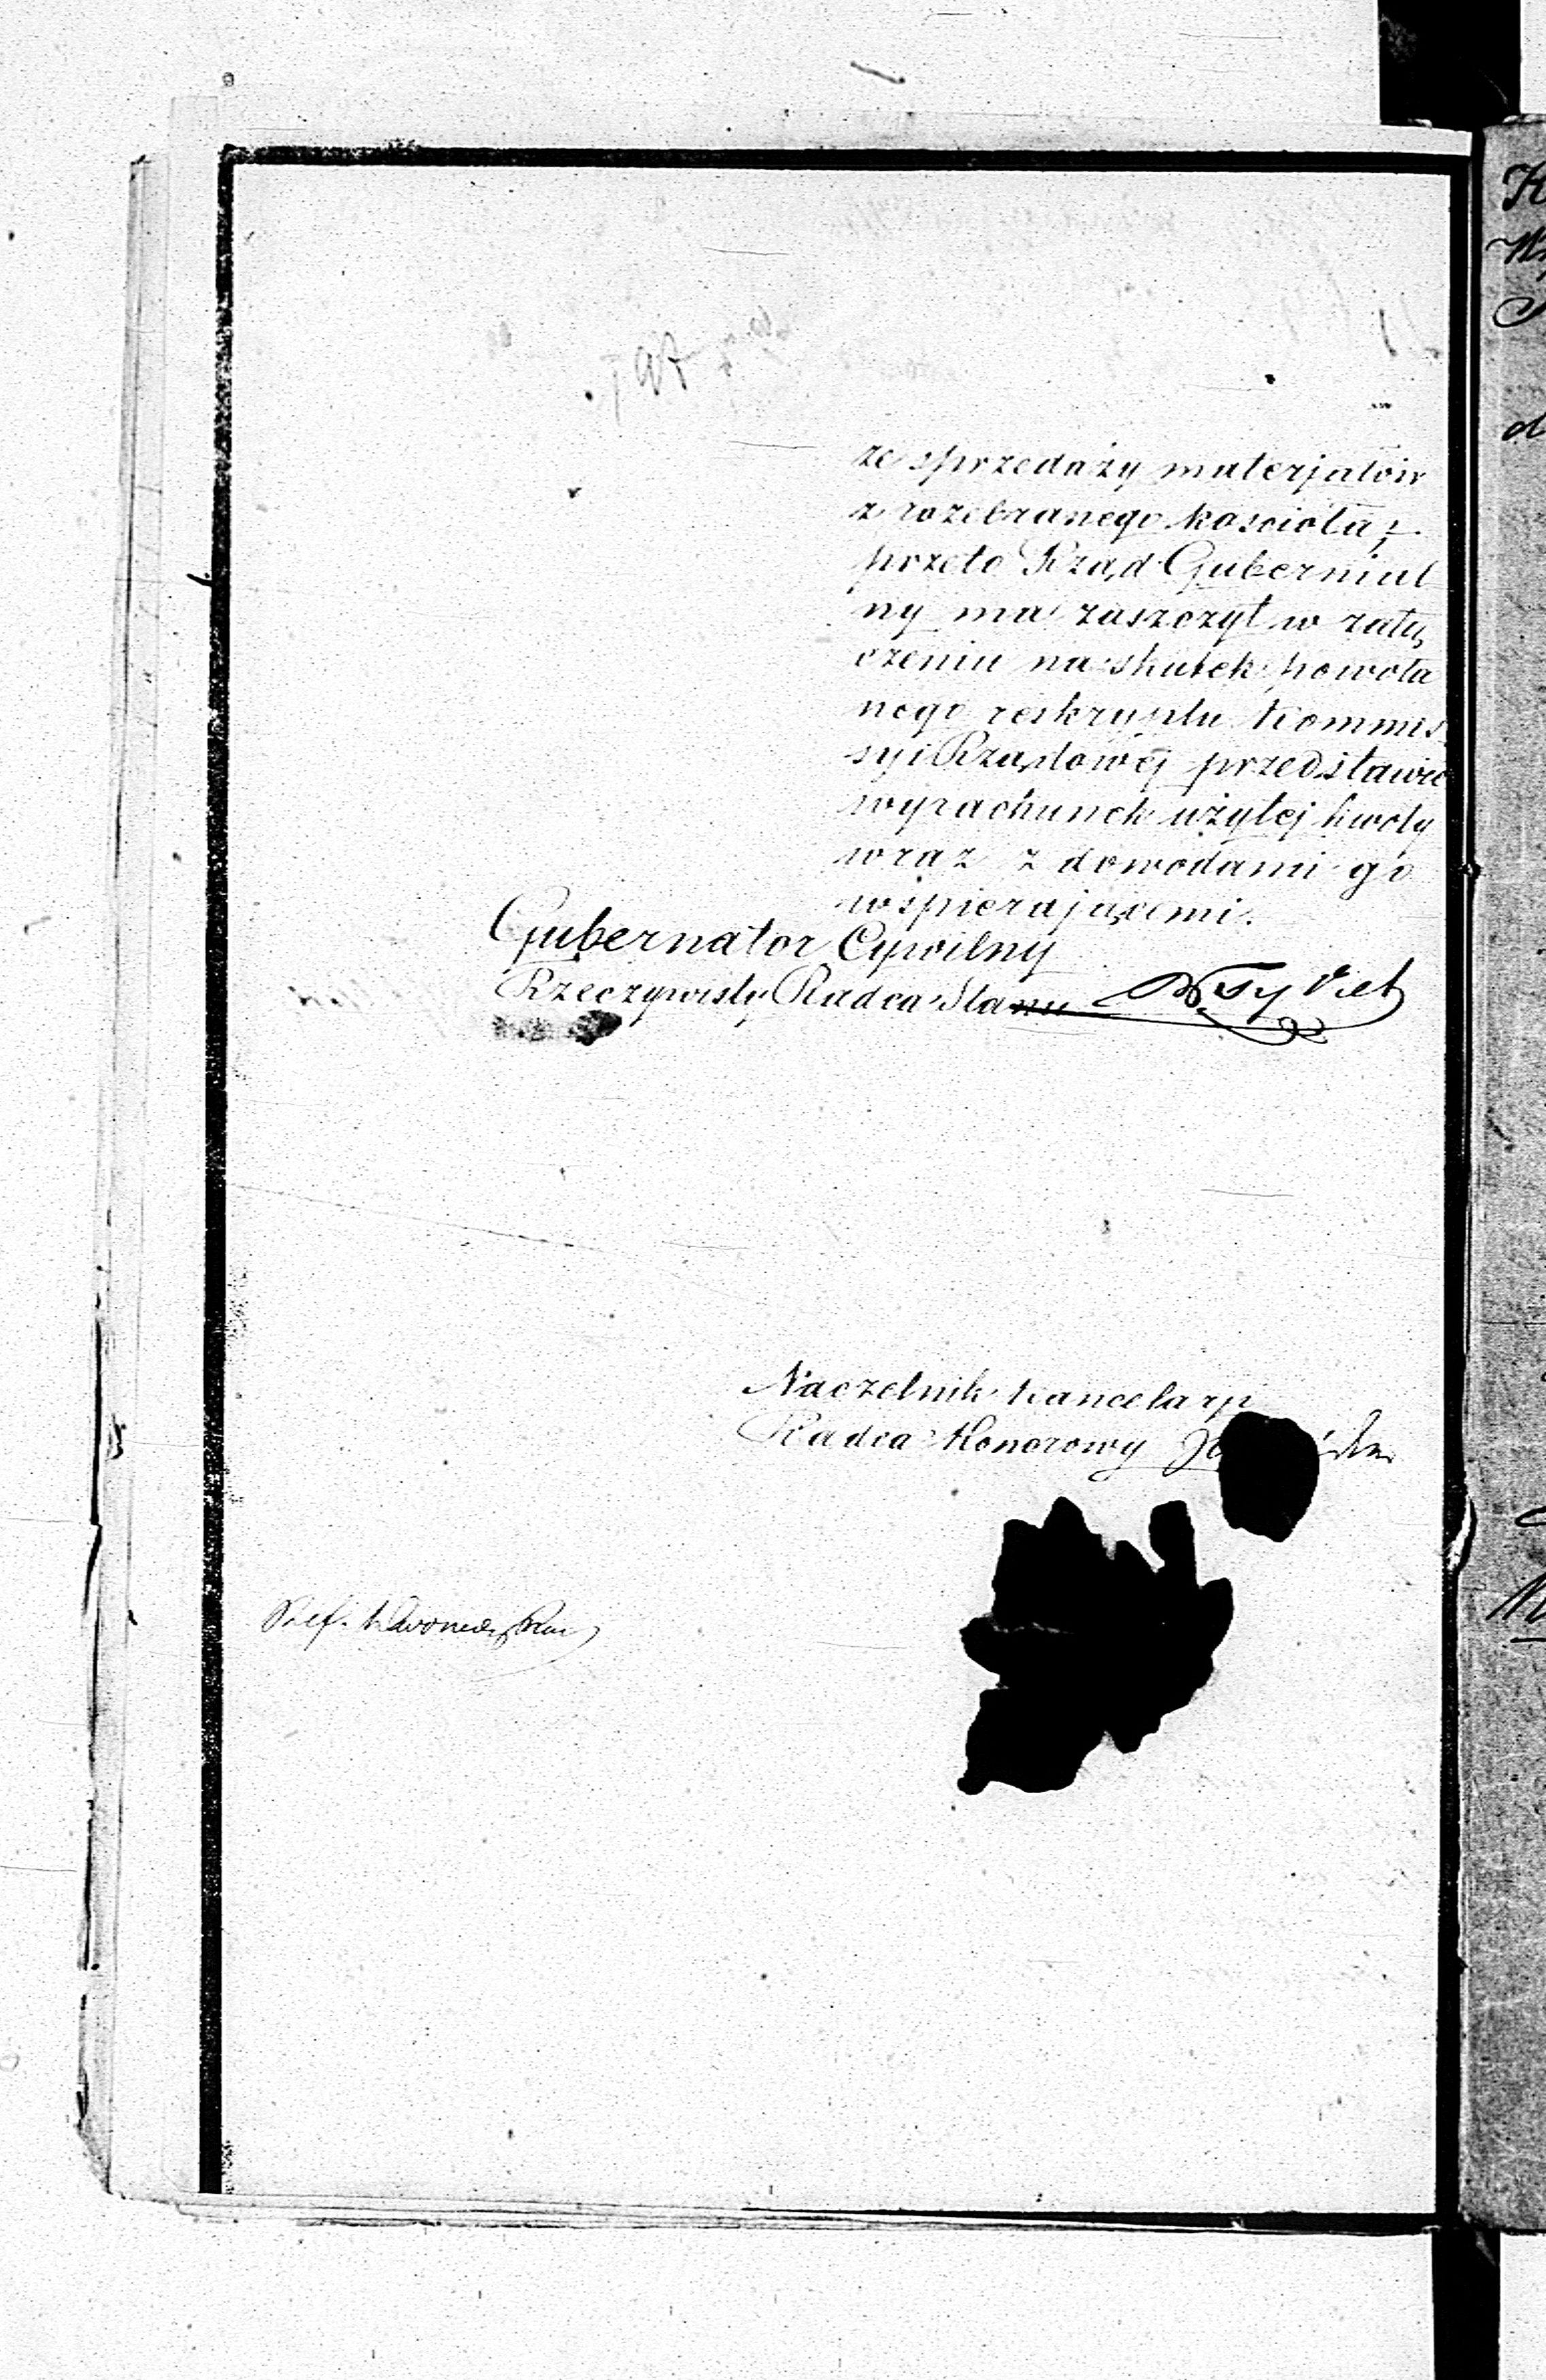 ze sprzedaży materjałów
z rozebranego kościoła,
przeto Rząd Gubernial
ny ma zaszczyt w załą
czeniu na skutek powoła
nego reskryptu Kommis
syi Rządowéj przedstawić
wyrachunek użytej kwoty
wraz z dowodami go
wspierającemi.
Gubernator Cywilny
Rzeczywisty Radca Stanu
Naczelnik Kancelaryi
Radca Honorowy